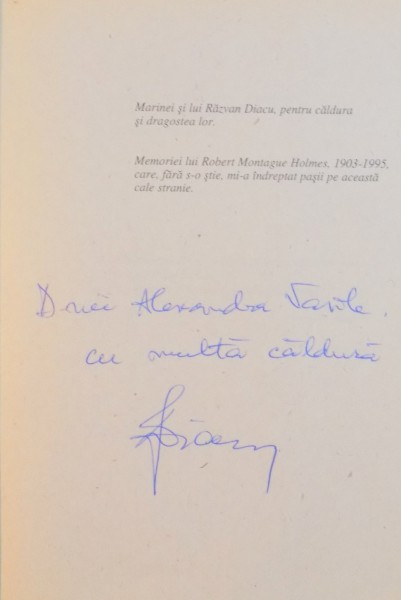 Marinei și lui Răzvan Diacu, pentru căldura
și dragostea lor.
Memoriei lui Robert Montague Holmes, 1903-1995,
care, fără s-o știe, mi-a îndreptat pașii pe această
cale stranie.
Dnei Alexandra Vasile,
cu multă căldură